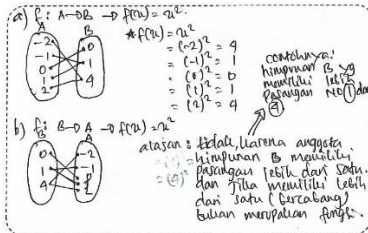 a) f: A→B → f(x) = x².
A
B
-2
-1
0
1
2
0
1
4
* f(x) = x²
= (-2)² = 4
= (-1)² = 1
= (0)² = 0
= (1)² = 1
= (2)² = 4
contohnya:
himpunan B yg
memiliki lebih
pasangan NO ① dan
④
b) f: B→A → f(x) = x²
B
A
0
1
4
-2
-1
alasan: tidak, karena anggota
himpunan B memiliki
pasangan lebih dari satu.
dan jika memiliki lebih
dari satu (bercabang)
bukan merupakan fungsi.
= (4)²